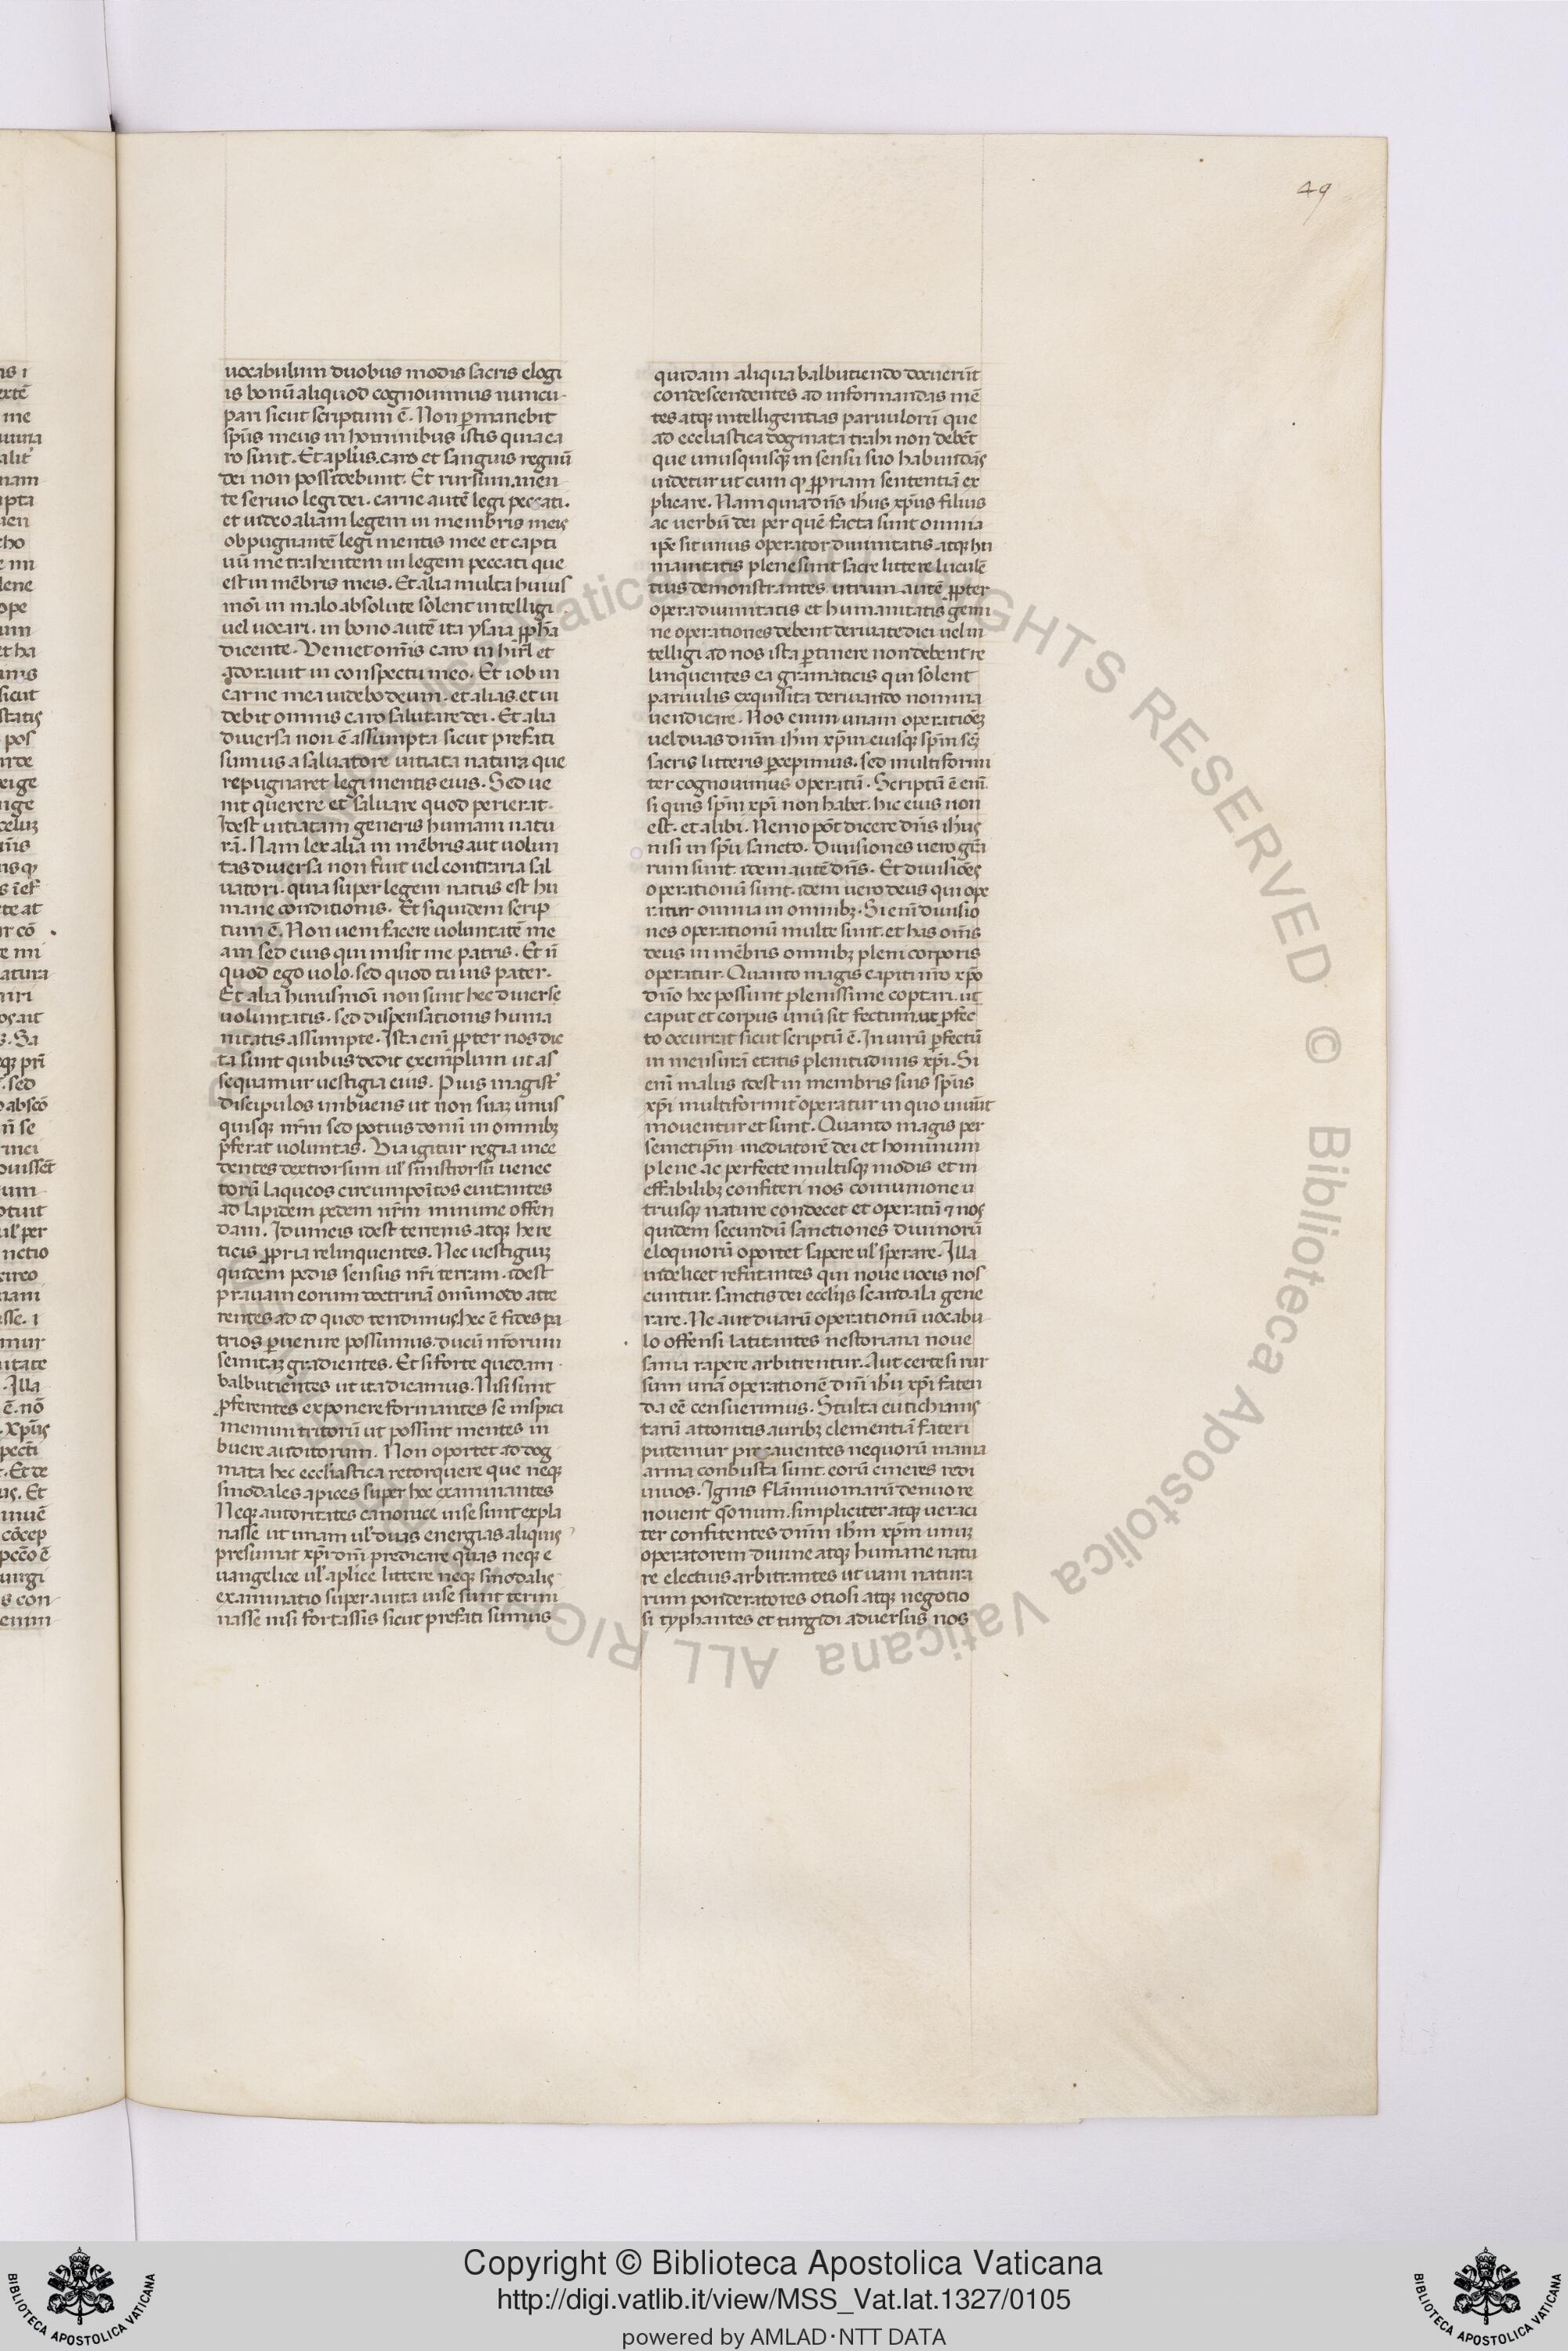 49
uocabulum duobus modis sacris elogi
is bonū aliquod cognouimus nuncu-
pari sicut scriptum ē. Non ꝑmanebit
spūs meus in hominibus istis quia ca
ro sunt. Et aplūs. caro et sanguis regnū
dei non possidebunt. Et rursum. men
te seruio legi dei. carne autē legi peccati.
et uideo aliam legem in membris meis
obpugnantē legi mentis mee et capti
uū me trahentem in legem peccati que
est in mēbris meis. Et alia multa huius
mōi in malo absolute solent intelligi
uel uocari. in bono autē ita ysaia ꝓph̄a
dicente. Veniet om̄is caro in hirl̄ et
adorauit in conspectu meo. Et iob in
carne mea uidebo deum. et alias. et ui
debit omnis caro salutare dei. Et alia
diuersa non ē assumpta sicut prefati
sumus a saluatore uitiata natura que
repugnaret legi mentis eius. Sed ue
nit querere et saluare quod perierat.
Idest uitiatam generis humani natu
rā. Nam lex alia in mēbris aut uolun
tas diuersa non fuit uel contraria sal
uatori. quia super legem natus est hu
mane conditionis. Et siquidem scrip
tum ē. Non ueni facere uoluntatē me
am sed eius qui misit me patris. Et n̄
quod ego uolo. sed quod tu uis pater.
Et alia huiusmōi non sunt hec diuerse
uoluntatis. sed dispensationis huma
nitatis assumpte. Ista enī ꝓpter nos dic
ta sunt quibus dedit exemplum ut as
sequamur uestigia eius. Pius magist̄
discipulos imbuens ut non suaꝫ unus
quisqꝫ nr̄m sed potius domī in omnibꝫ
p̄ferat uoluntas. Via igitur regia ince
dentes dextrorsum ul̄ sinistrorsū uenec
torū laqueos circumpoītos euitantes
ad lapidem pedem nr̄m minime offen
dam. Idumeis idest terrenis atqꝫ here
ticis ꝓpria relinquentes. Nec uestiguiꝫ
quidem pedis sensus nr̄i terram. idest
prauam eorum doctrinā omīmodo atte
rentes ad id quod tendimus. hec ē fides pa
trios ꝑuenire possumus. ducū nr̄orum
semitaꝫ gradientes. Et si forte quedam
balbutientes ut ita dicamus. Nisi sunt
ꝓferentes exponere formantes se inspici
menim tritorū ut possint mentes in
buere auditorum. Non oportet ad dog
mata hec eccliastica retorquere que neqꝫ
sinodales apices super hoc examinantes
Neqꝫ autoritates canonice uise sunt expla
nasse ut unam ul̄ duas energias aliquis
presumat xp̄i dnī predicare quas neqꝫ e
uangelice ul̄ aplice littere neqꝫ sinodalis
examinatio super auita uise sunt termi
nasse nisi fortassis sicut prefati sumus
quidam aliqua balbutiendo docuerūt
condescendentes ad informandas mē
tes atqꝫ intelligentias paruulorū que
ad eccliastica dogmata trahi non debēt
que unusquisqꝫ in sensu suo habundās
uidetur ut cum qꝫ ꝓpriam sententiā ex
plicare. Nam quia dn̄s ih̄us xp̄us filius
ac uerbū dei per quē facta sunt omnia
ip̄e sit unus operator diuinitatis atqꝫ hu
manitatis plene sunt sacre littere luculē
tius demonstrantes. utrum autē ꝓpter
opera diuinitatis et humanitatis gemi
ne operationes debent deriuate dici uel in
telligi ad nos ista ꝑtinere non debent re
linquentes ea gramaticis qui solent
paruulis exquisita deriuando nomina
uendicare. Nos enim unam operationeꝫ
uel duas dnm̄ ih̄m xp̄m eiusqꝫ spm̄ sc̄ꝫ
sacris litteris ꝑcepimus. sed multiformi
ter cognouimus operatū. Scriptū ē enī.
si quis spm̄ xp̄i non habet. hic eius non
est. et alibi. Nemo pōt dicere dn̄s ih̄us
nisi in spū sancto. Diuisiones uero grā
rum sunt. idem autē dn̄s. Et diuisiōes
operationū sunt. idem uero deus qui ope
ratur omnia in omnibꝫ. Si enī diuisio
nes operationū multe sunt. et has om̄s
deus in mēbris omnibꝫ pleni corporis
operatur. Quanto magis capiti nr̄o xp̄o
dn̄o hec possunt plenissime coptari. ut
caput et corpus unū sit fectum. ut ꝑfec
to occurrat sicut scriptū ē. In uirū ꝑfectū
in mensurā etatis plenitudinis xp̄i. Si
enī malus idest in membris suis spūs
xp̄i multiformit̄ operatur in quo uiuūt
mouentur et sunt. Quanto magis per
semetip̄m mediatorē dei et hominum
plene ac perfecte multisqꝫ modis et in
effabilibꝫ confiteri nos comunione u
triusqꝫ nature condecet et operatū ⁊ nos
quidem secundū sanctiones diuinorū
eloquiorū oportet sapere ul̄ sperare. Illa
uidelicet refutantes qui noue uocis nos
cuntur. sanctis dei eccliis scandala gene
rare. Ne aut duarū operationū uocabu
lo offensi latitantes nestoriana noue
sania rapere arbitrentur. Aut certe si rur
sum unā operationē dnī ih̄u xp̄i faten
da eē censuerimus. Stulta eutichianis
tarū attonitis auribꝫ clementiā fateri
putemur precauentes nequorū mania
arma conbusta sunt. eorū cineres redi
uiuos. Ignis flāmiuomarū denuo re
nouent qōnum. simpliciter atqꝫ ueraci
ter confitentes dnm̄ ih̄m xp̄m unuꝫ
operatorem diuine atqꝫ humane natu
re electius arbitrantes ut uani natura
rum ponderatores otiosi atqꝫ negotio
si typhantes et turgidi aduersus nos
Copyright © Biblioteca Apostolica Vaticana
http://digi.vatlib.it/view/MSS_Vat.lat.1327/0105
powered by AMLAD·NTT DATA
BIBLIOTECA APOSTOLICA VATICANA
BIBLIOTECA APOSTOLICA VATICANA